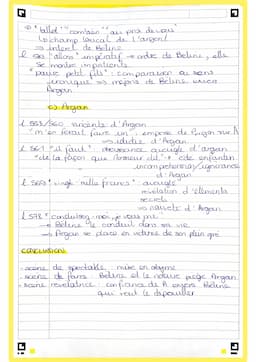 → "billet" "combien" "au prix de vous"
↳ champ lexical de l'argent
⇒ intérêt de Béline
"allons" impératif → ordre de Béline, elle
se montre impatiente
"pauvre petit fils" : comparaison au sens
⇒ Béline envers
Argan
c) Argan
l 559/560 d'Argan
"m'en ferait faire un" : emprise de Purgon sur A
d'Argan
l 561 "il faut" aveugle d'argan
"de la façon que Monsieur dit" → côté enfantin
incompréhension/ignorance
d'Argan
"vingt mille francs" aveugle
révélation d'éléments
secrets
⇒ naïveté d'Argan
l 578 "conduisez-moi, je vous prie"
→ Béline le conduit dans sa vie
⇒ Argan se place en victime de son plein gré
CONCLUSION
- scène de spectacle mise en abyme
- scène de farce : Béline et le notaire piège Argan
- scène révélatrice : confiance de A envers Béline
qui veut le dépouiller